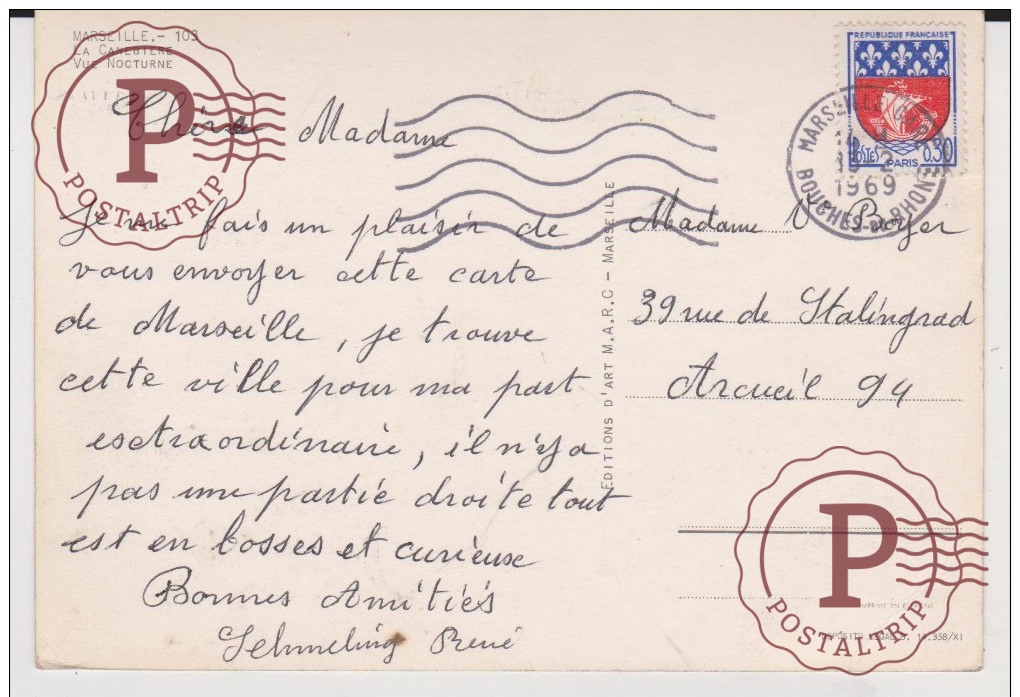 MARSEILLE.- 103
LA CANEBIÈRE
VUE NOCTURNE
Chère Madame
Je me fais un plaisir de
vous envoyer cette carte
de Marseille, je trouve
cette ville pour ma part
esctraordinaire, il n'y a
pas une partie droite tout
est en bosses et curieuse
Bonnes Amitiés
Schmeling René
EDITIONS D'ART M.A.R.C - MARSEILLE
REPUBLIQUE FRANÇAISE
POSTES PARIS 0,30
MARSEILLE GARE
1969
BOUCHES-DU-RHONE
Madame V Boyer
39 rue de Stalingrad
Arcueil 94
DEPOSITO LEGAL B. 358/XI
P
POSTALTRIP
P
POSTALTRIP